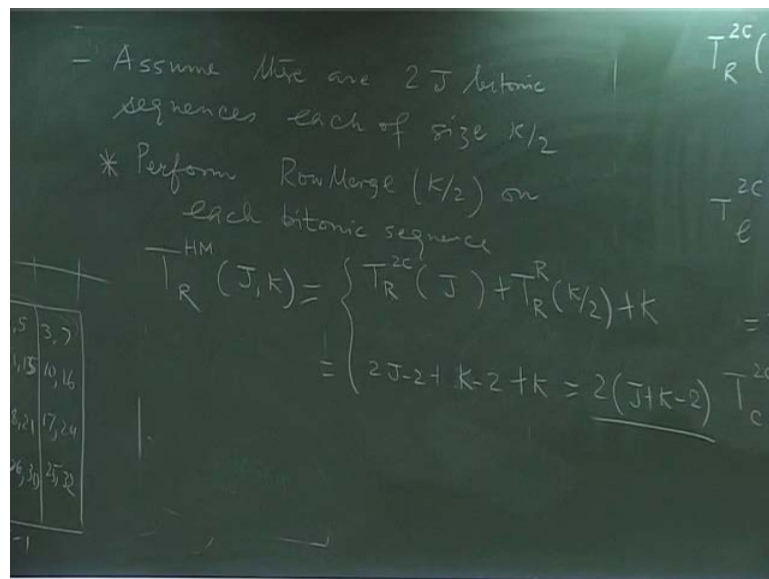 - Assume there are 2J bitonic
sequences each of size K/2
* Perform RowMerge (K/2) on
each bitonic sequence
T_R^{HM} (J,K) = { T_R^{2C} (J) + T_R^R (K/2) + K
= { 2J-2 + K-2 + K = 2(J+K-2)
T_R^{2C} (
T_ℓ^{2C}
=
T_c^{2C}
,5 3,7
1,15 10,16
8,21 17,24
26,30 25,32
-1